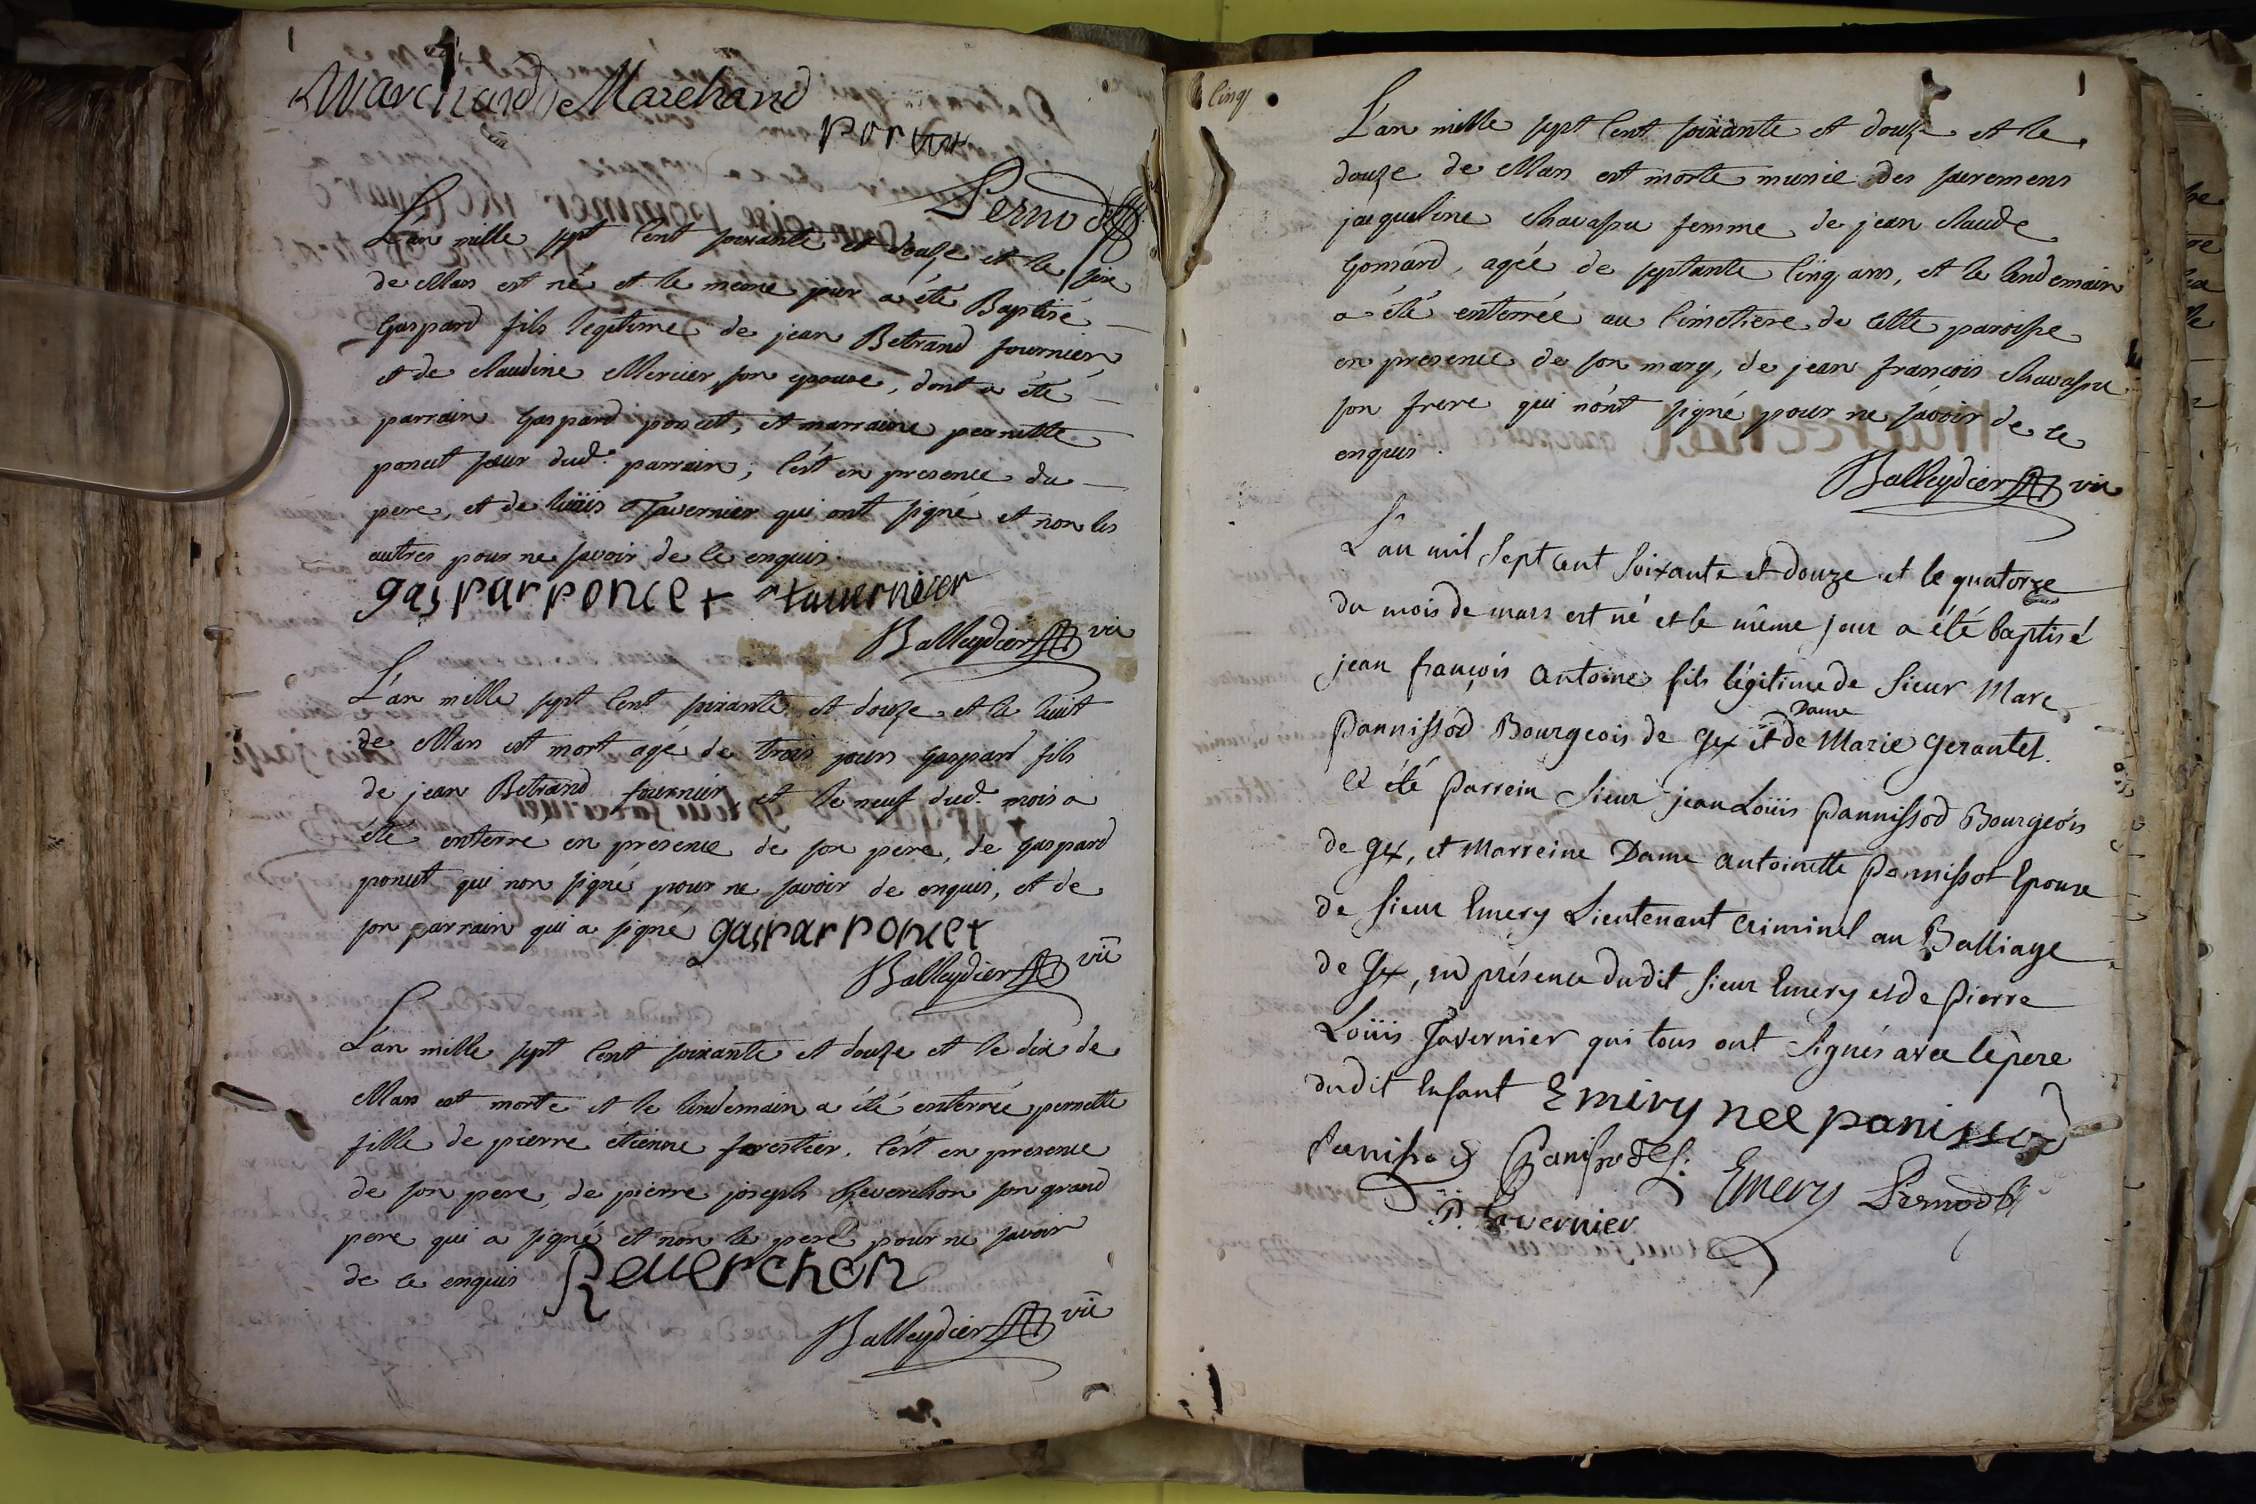 Marchand Marchand
Pernod
L'an mille sept cent soixante et douze et le six
de Mars est né et le meme jour a été Baptisé
Gaspard fils légitime de jean Betrand fournier,
et de Claudine Mercier son epouse, dont a été
parrain Gaspard poncet, et marraine pernette
poncet sœur dud. parrain; C'est en presence du
pere, et de loüis Tavernier qui ont signé et non les
autres pour ne savoir de ce enquis
gaspar poncet tavernier
Balleydier vic
L'an mille sept cent soixante et douze et le huit
de Mars est mort agé de trois jours Gaspard fils
de jean Betrand fournier, et le neuf dud. mois a
été enterre en presence de son pere, de gaspard
poncet qui non signé pour ne savoir de enquis, et de
son parrain qui a signé gaspar poncet
Balleydier vic
L'an mille sept cent soixante et douze et le dix de
Mars est morte et le lendemain a été enterrée pernette
fille de pierre étienne forestier. C'est en presence
de son pere, de pierre joseph Reverchon son grand
pere qui a signé et non le pere pour ne savoir
de ce enquis Reverchon
Balleydier vic
cinq
L'an mille sept cent soixante et douze et le
douze de Mars est morte munie des sacremens
jacqueline Chavassu femme de jean Claude
Gomard, agée de septante cinq ans, et le lendemain
a été enterrée au Cimetiere de cette paroisse
en presence de son mary, de jean françois Chavassu
son frere qui n'ont signé pour ne savoir de ce
enquis.
Balleydier vic
L'an mil sept cent soixante et douze et le quatorze
du mois de mars est né et le même jour a été baptisé
jean françois Antoine fils légitime de sieur Marc
Pannissod Bourgeois de Gex et de Dame Marie Gerantet.
a été Parrein sieur jean Loüis Pannissod Bourgeois
de Gex, et Marreine Dame Antoinette Pannissot Epouse
de sieur Emery Lieutenant Criminel au Balliage
de Gex, en présence dudit sieur Emery et de Pierre
Loüis Tavernier qui tous ont signés avec le pere
dudit Enfant Emery nee panissod
Panissod Panissod Emery Pernod
P. L. tavernier